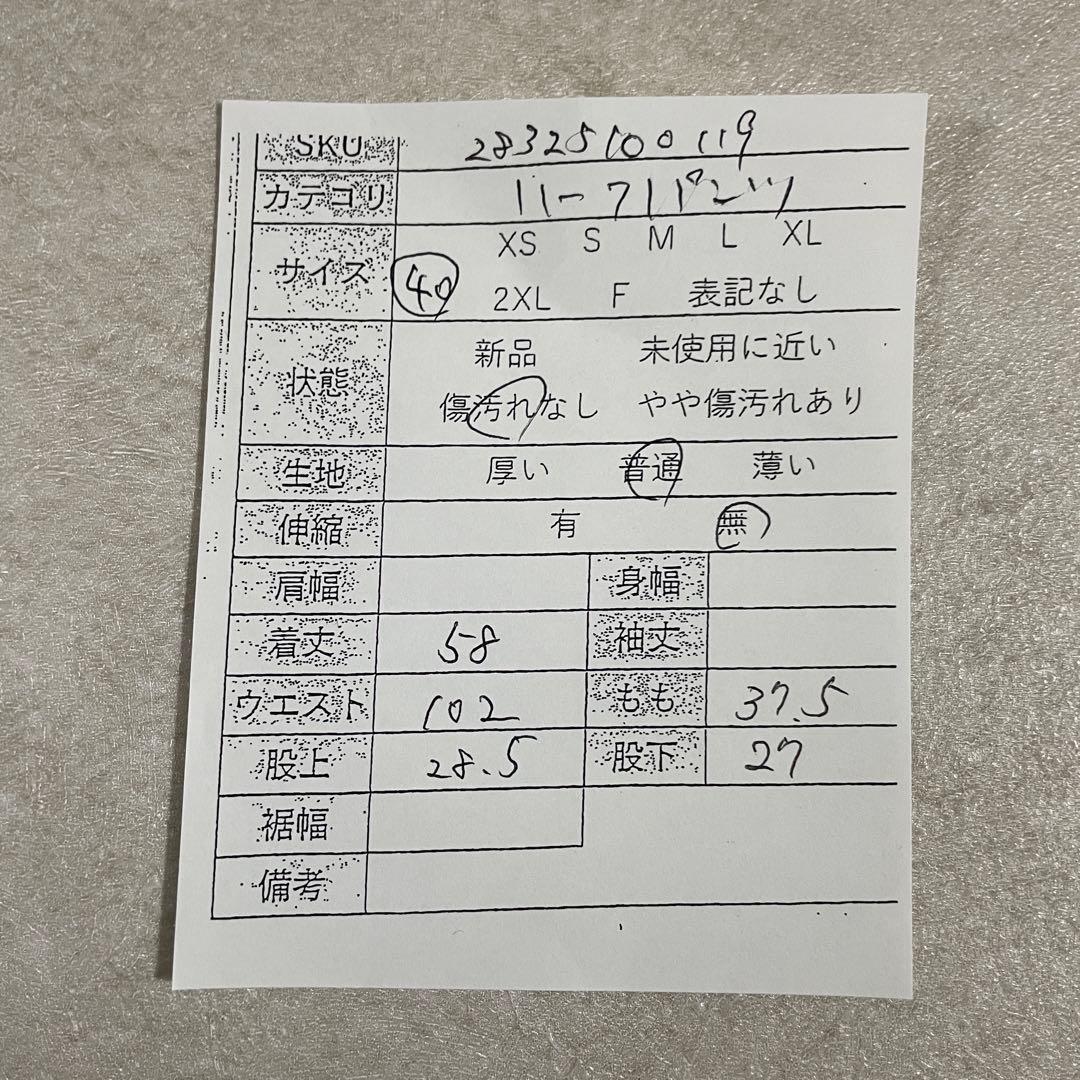 SKU 28325100119
カテゴリ ハーフパンツ
サイズ XS S M L XL
40 2XL F 表記なし
状態 新品 未使用に近い
傷汚れなし やや傷汚れあり
生地 厚い 普通 薄い
伸縮 有 無
肩幅 身幅
着丈 58 袖丈
ウエスト 102 もも 37.5
股上 28.5 股下 27
裾幅
備考